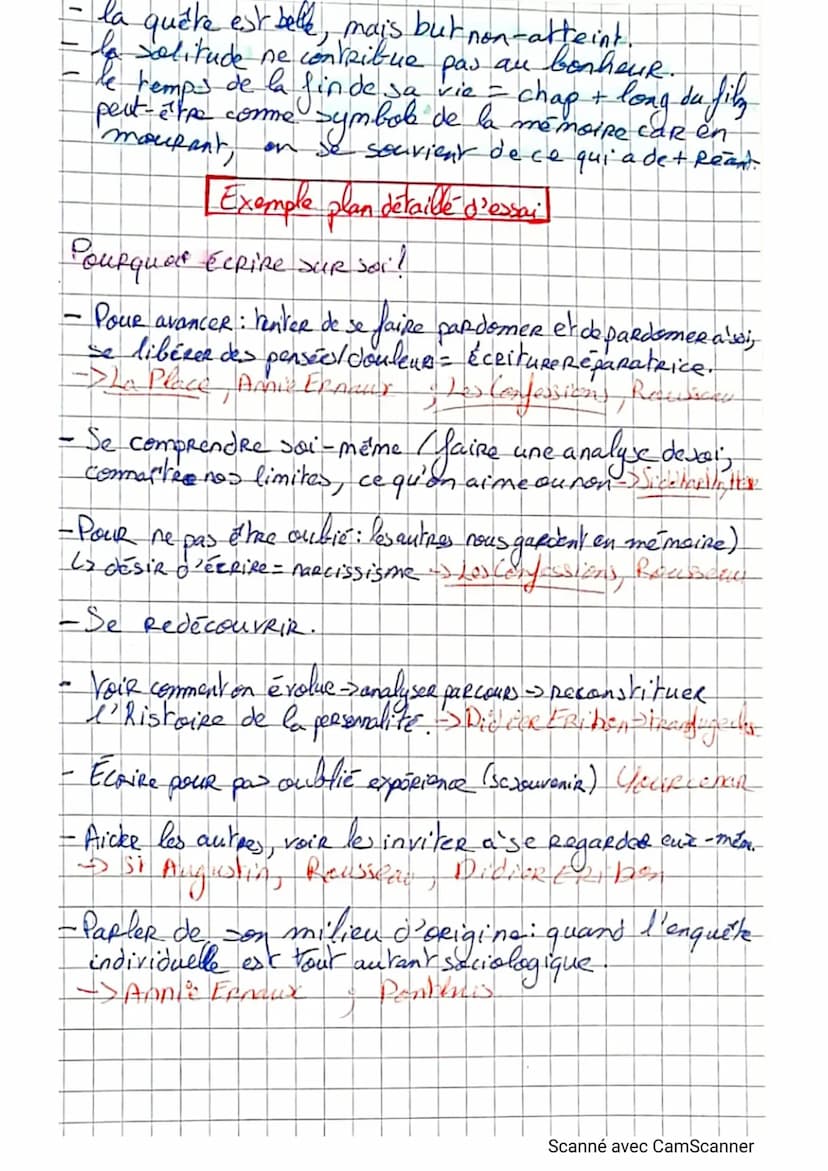 - la quête est belle, mais but non-atteint.
- la solitude ne contribue pas au bonheur.
- le temps de la fin de sa vie = chap + long du film
peut-être comme symbole de la mémoire car en
mourant, on se souvient de ce qui a de +
Exemple plan détaillé d'essai
Pourquoi écrire sur soi !
- Pour avancer : tenter de se faire pardonner et de pardonner à soi,
se libérer des pensées/douleurs = écriture réparatrice.
-> La Place, Annie Ernaux ; Les Confessions, Rousseau
- Se comprendre soi-même (faire une analyse de soi,
connaître nos limites, ce qu'on aime ou non ->
- Pour ne pas être oublié : les autres nous gardent en mémoire)
↳ désir d'écrire = narcissisme -> Les Confessions, Rousseau
- Se redécouvrir.
- Voir comment on évolue -> analyser parcours -> reconstituer
l'histoire de la personnalité. -> Didier Eribon ->
- Écrire pour pas oublié expérience (se souvenir) Yourcenar
- Aider les autres, voir les inviter à se regarder eux-mêm.
-> St Augustin, Rousseau, Didier Eribon
- Parler de son milieu d'origine : quand l'enquête
individuelle est tout autant sociologique.
-> Annie Ernaux ;
Scanné avec CamScanner